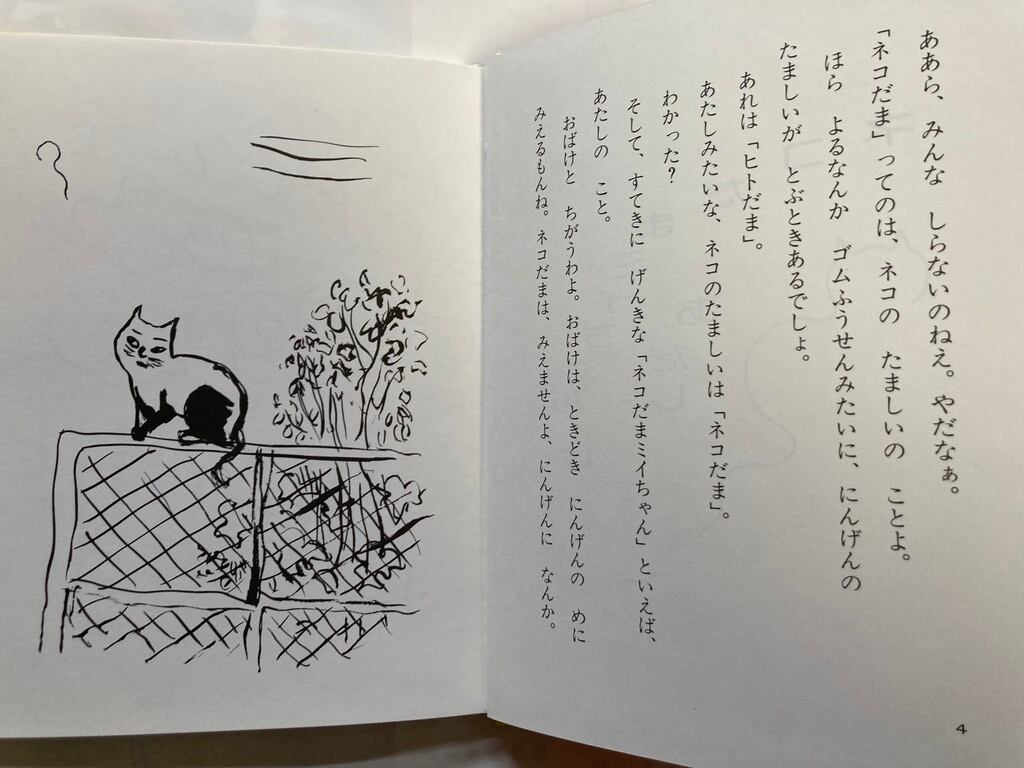 ああら、みんな　しらないのねえ。やだなぁ。
「ネコだま」ってのは、ネコの　たましいの　ことよ。
ほら　よるなんか　ゴムふうせんみたいに、にんげんの
たましいが　とぶときあるでしょ。
あれは「ヒトだま」。
あたしみたいな、ネコのたましいは「ネコだま」。
わかった？
そして、すてきに　げんきな「ネコだまミイちゃん」といえば、
あたしの　こと。
おばけと　ちがうわよ。おばけは、ときどき　にんげんの　めに
みえるもんね。ネコだまは、みえませんよ、にんげんに　なんか。
4